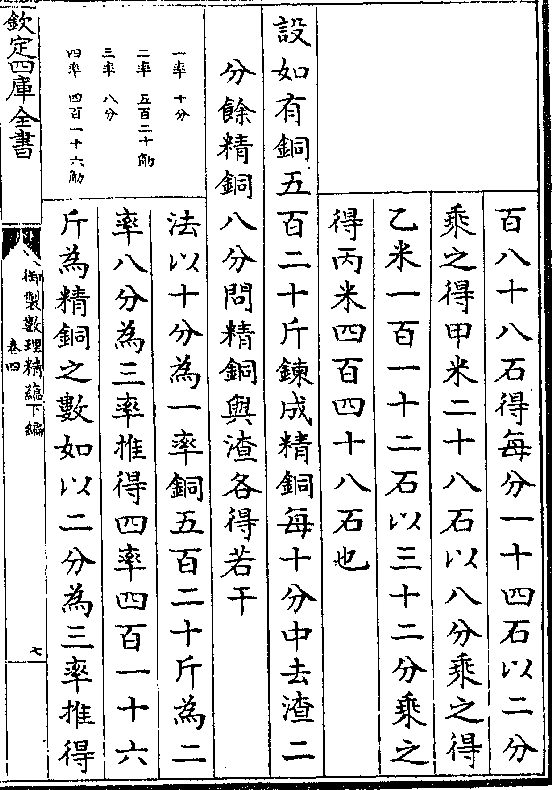 百八十八石得每分一十四石以二分
乘之得甲米二十八石以八分乘之得
乙米一百一十二石以三十二分乘之
得丙米四百四十八石也
設如有銅五百二十斤鍊成精銅每十分中去渣二
分餘精銅八分問精銅與渣各得若干
一率 十分
二率 五百二十觔
三率 八分
四率 四百一十六觔
法以十分為一率銅五百二十斤為二
率八分為三率推得四率四百一十六
斤為精銅之數如以二分為三率推得
欽定四庫全書
御製數理精藴下編
卷四
七